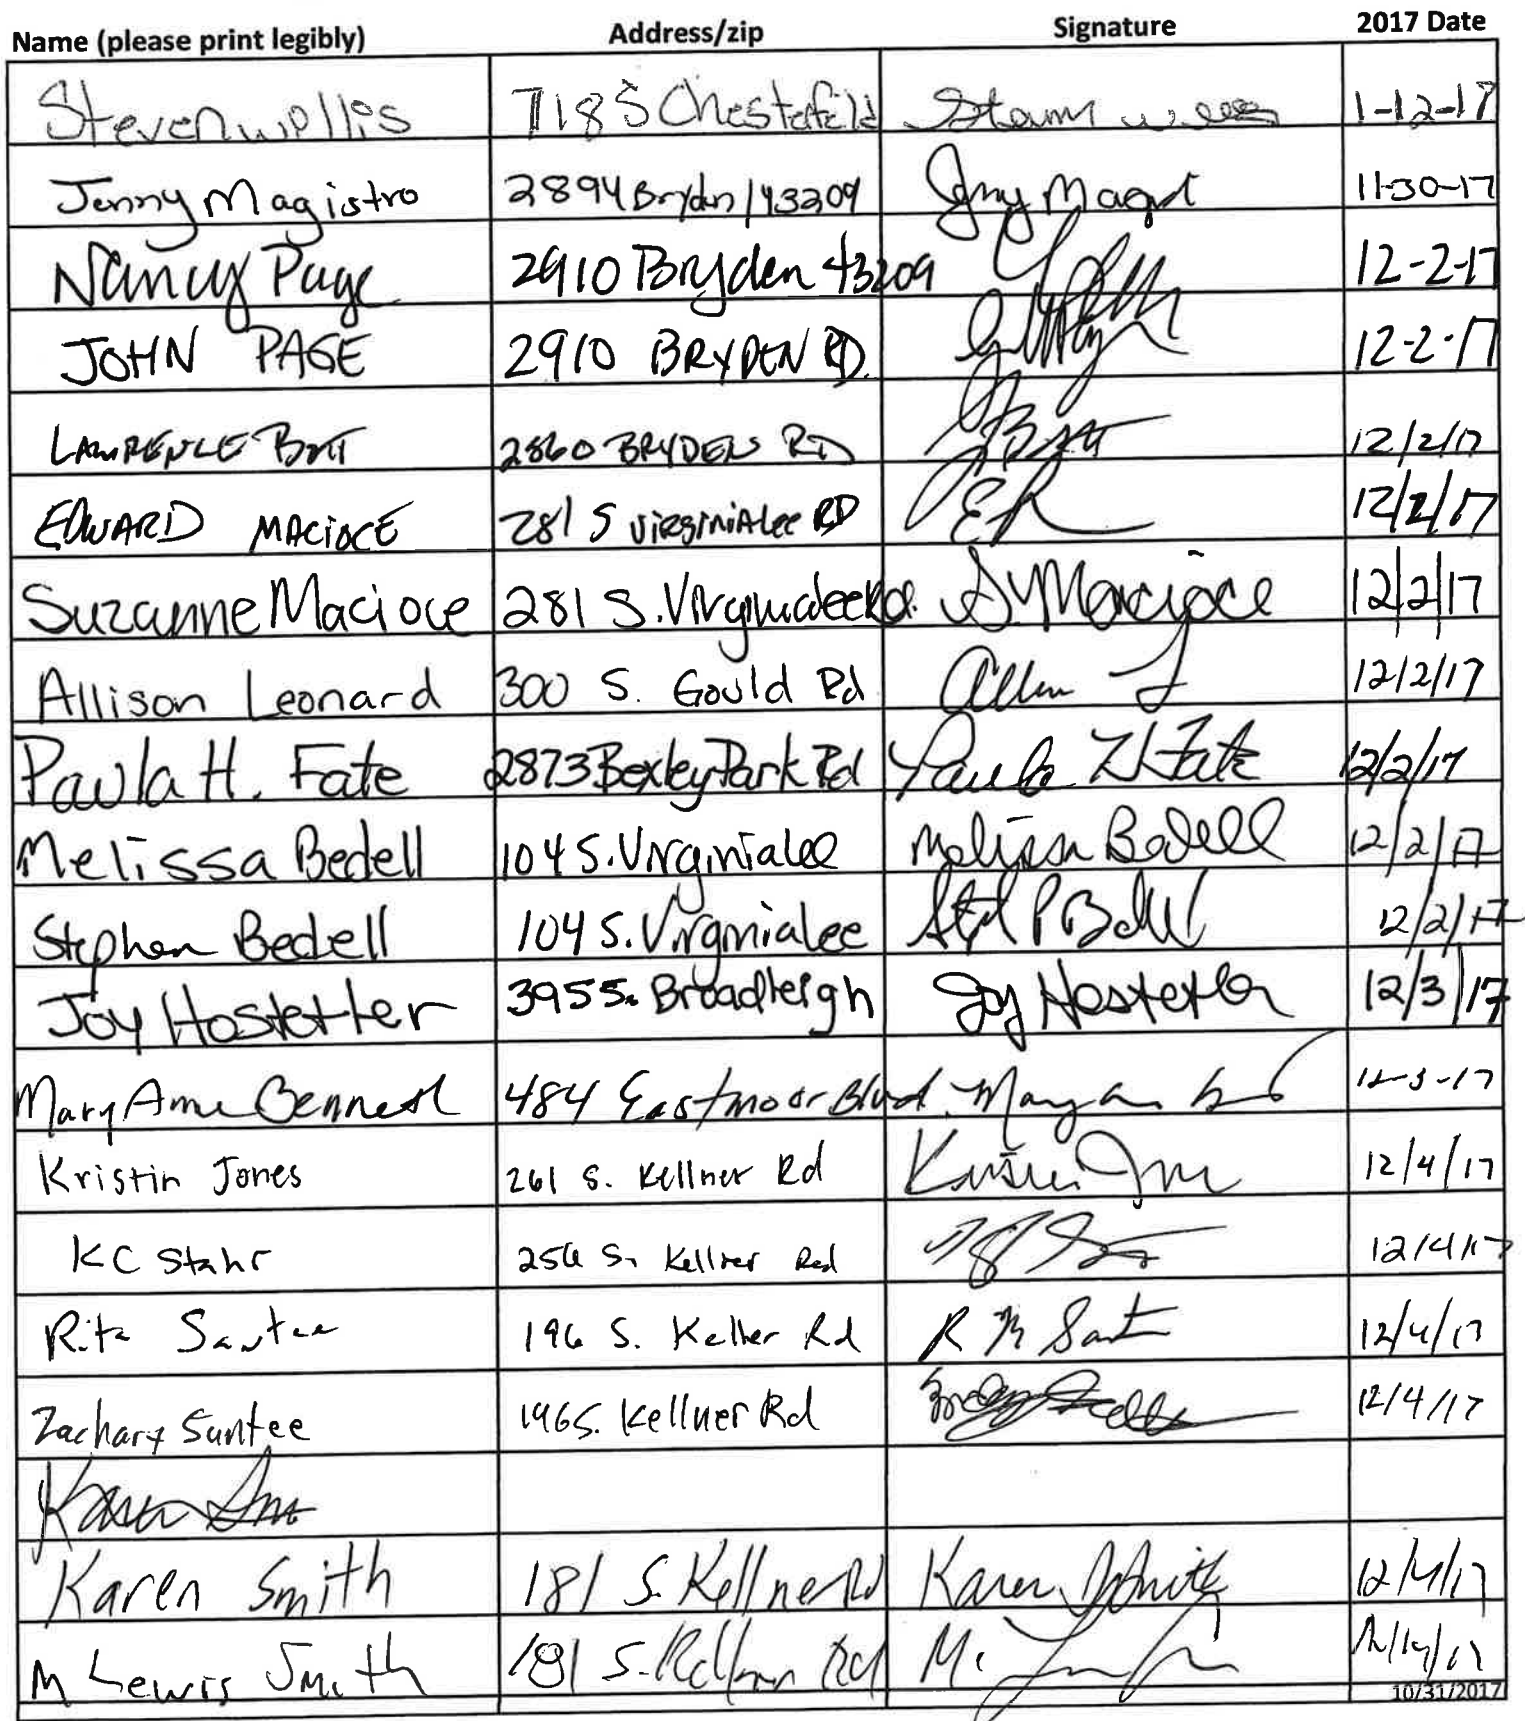 Name (please print legibly) Address/zip Signature 2017 Date
Steven willis 718 S Chesterfield 1-12-17
Jenny Magistro 2894 Bryden / 43209 Jny Magist 11-30-17
Nancy Page 2910 Bryden 43209 12-2-17
JOHN PAGE 2910 BRYDEN RD. 12-2-17
LAWRENCE BOTT 2860 BRYDEN RD 12/2/17
EDWARD MACIOCE 281 S VIRGINIALee RD 12/2/17
Suzanne Macioce 281 S. Virginialee Rd. S Macioce 12/2/17
Allison Leonard 300 S. Gould Rd 12/2/17
Paula H. Fate 2873 Bexley Park Rd Paula H Fate 12/2/17
Melissa Bedell 104 S. Virginialee Melissa Bedell 12/2/17
Stephen Bedell 104 S. Virginialee 12/2/17
Joy Hostetler 395 S. Broadleigh Joy Hostetler 12/3/17
Mary Anne Bennett 484 Eastmoor Blvd. 12-3-17
Kristin Jones 261 S. Kellner Rd 12/4/17
KC Stahr 256 S. Kellner Rd 12/4/17
Rita Santee 196 S. Kellner Rd R M Santee 12/4/17
Zachary Santee 196 S. Kellner Rd 12/4/17
Karen Smith 181 S. Kellner Rd Karen Smith 12/4/17
M Lewis Smith 181 S. Kellner Rd 12/4/17
10/31/2017